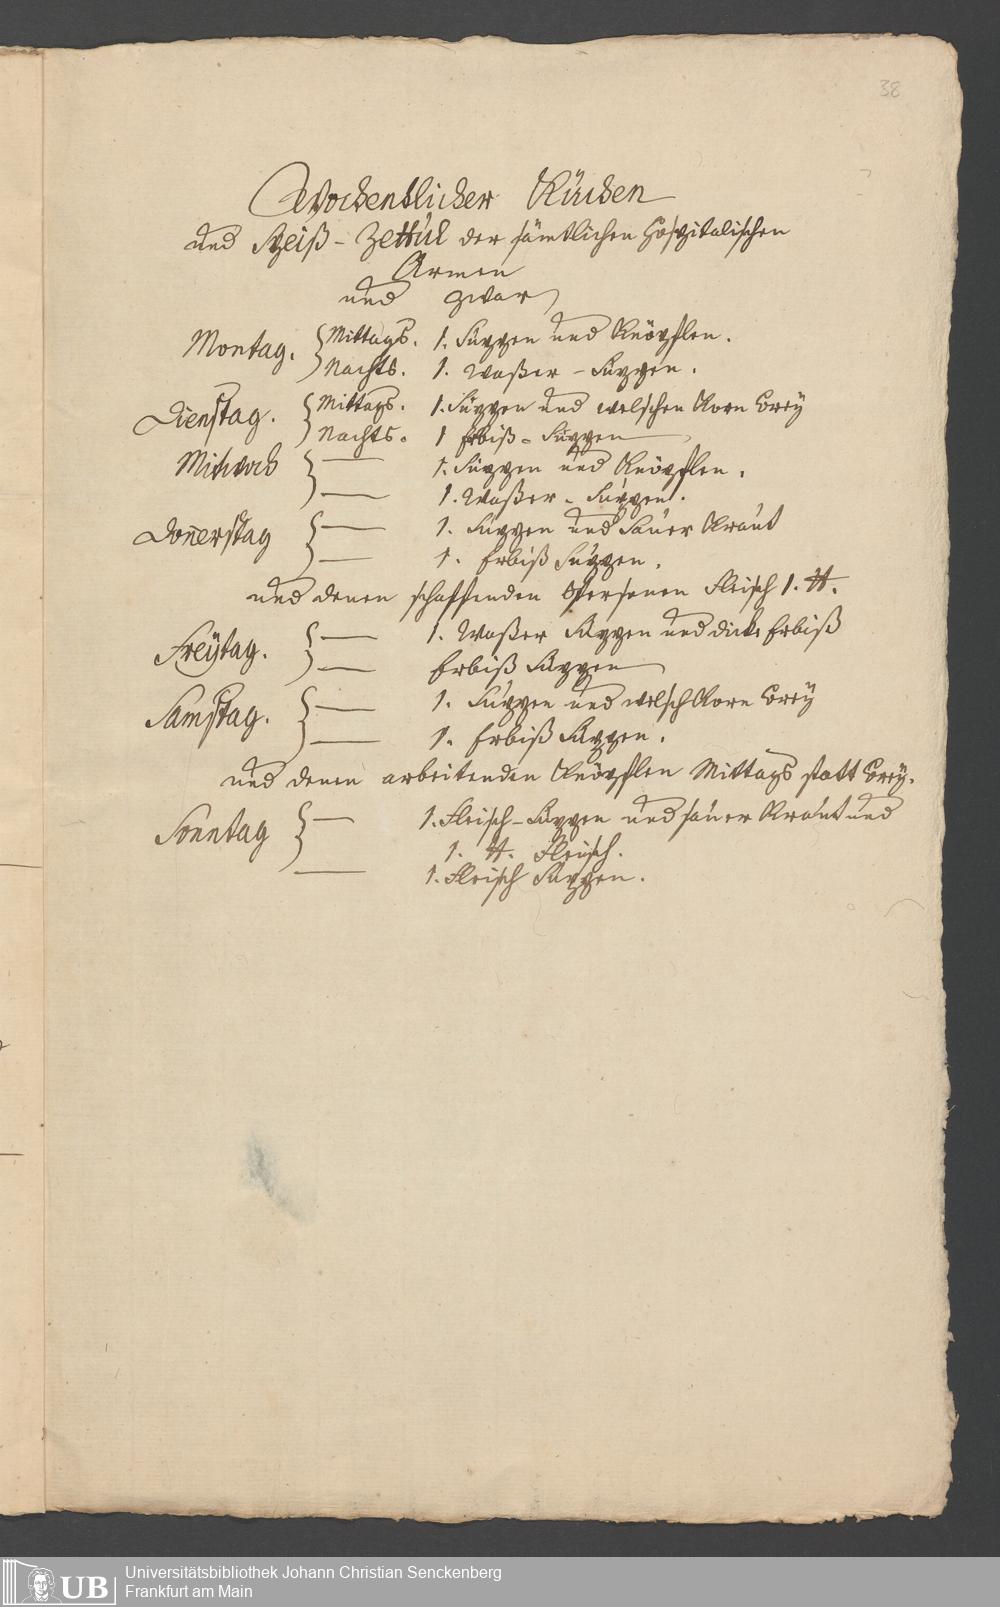 38
Wochentlicher Kuchen
und Speiß-Zettul der sämtlichen Hospitalischen
Armen
und zwar
Montag. Mittags. 1. Suppen und Knöpflen.
Nachts. 1. Waßer-Suppen.
Dienstag. Mittags. 1. Suppen und welschen Korn Brey
Nachts. 1 Erbiß-Suppen
Mitwoch — 1. Suppen und Knöpflen.
— 1. Waßer-Suppen.
Donnerstag — 1. Suppen und Sauer Kraut
— 1. Erbiß Suppen.
und denen schaffenden Personen Fleisch 1. ℔.
Freytag. — 1. Waßer Suppen und dicke Erbiß
— Erbiß Suppen
Samstag. — 1. Suppen und welsch Korn Brey
— 1. Erbiß Suppen.
und denen arbeitenden Knöpflen Mittags statt Brey.
Sonntag — 1. Fleisch-Suppen und sauer Kraut und
1. ℔. Fleisch.
— 1. Fleisch Suppen.
UB Universitätsbibliothek Johann Christian Senckenberg
Frankfurt am Main